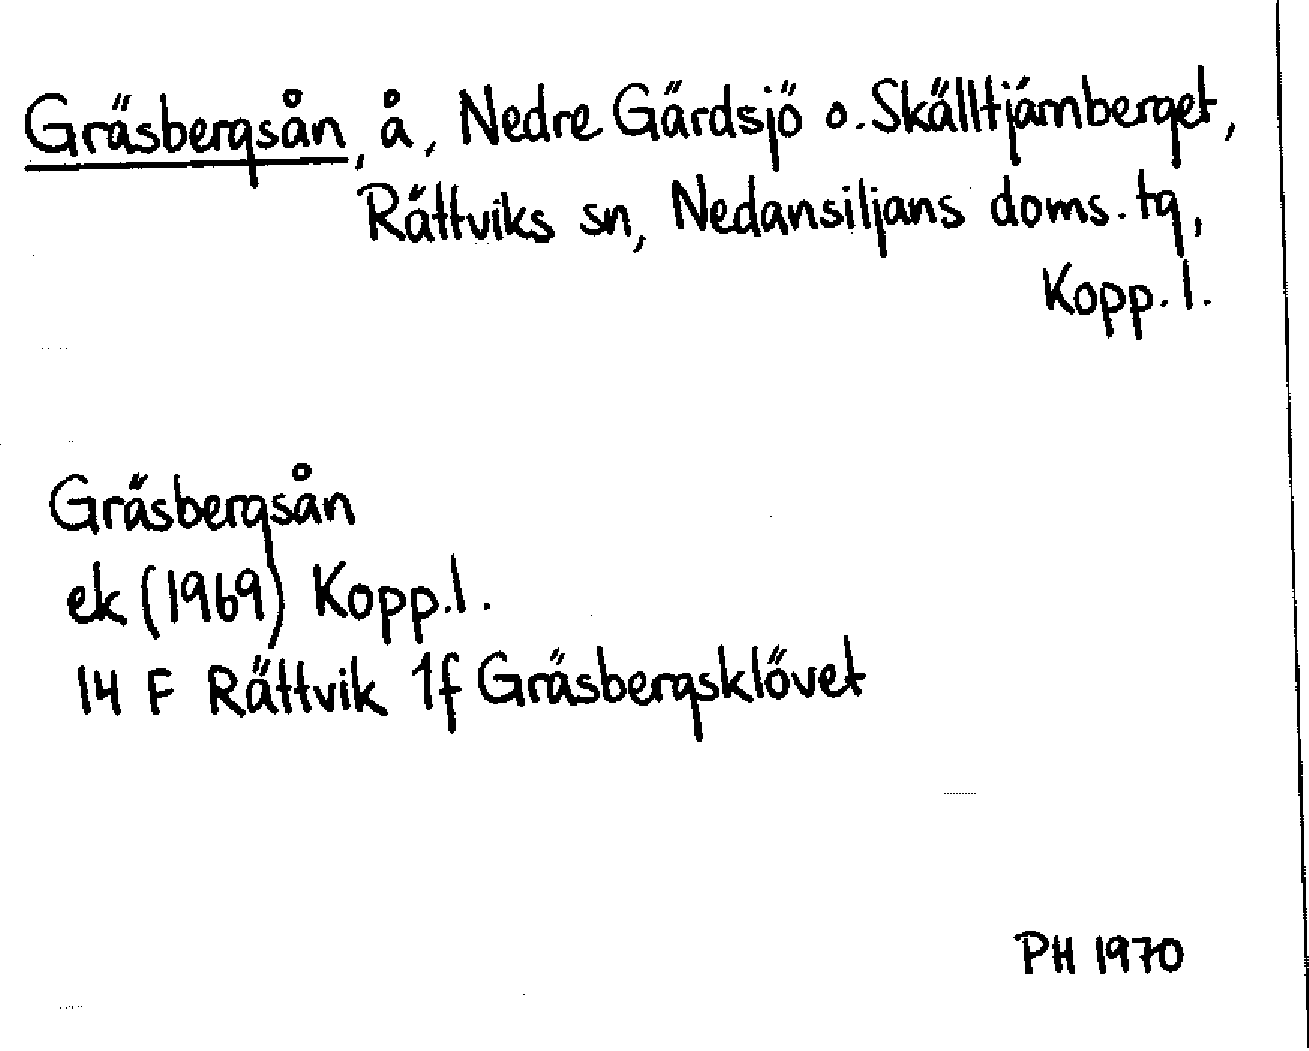 Gräsbergsån, å, Nedre Gärdsjö o. Skålltjärnberget,
Rättviks sn, Nedansiljans doms. tg,
Kopp. l.
Gräsbergsån
ek (1969) Kopp. l.
14 F Rättvik 1f Gräsbergsklövet
PH 1970